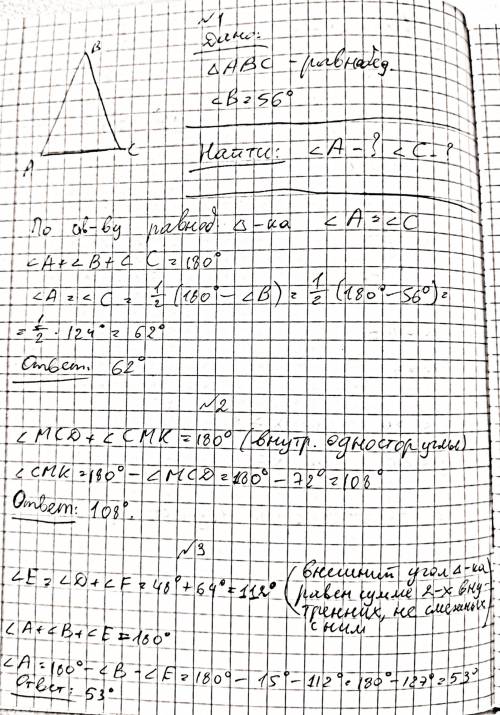 №1
Дано:
△ABC - равнобед.
∠B = 56°
Найти: ∠A - ? ∠C - ?
B
A
C
По св-ву равнод △-ка ∠A = ∠C
∠A + ∠B + ∠C = 180°
∠A = ∠C = 1/2 (180° - ∠B) = 1/2 (180° - 56°) =
= 1/2 · 124° = 62°
Ответ: 62°
№2
∠MCD + ∠CMK = 180° (внутр. одностор углы)
∠CMK = 180° - ∠MCD = 180° - 72° = 108°
Ответ: 108°.
№3
∠E = ∠D + ∠F = 48° + 64° = 112° (внешний угол △-ка
равен сумме 2-х вну-
тренних, не смежных
с ним
∠A + ∠B + ∠E = 180°
∠A = 180° - ∠B - ∠E = 180° - 15° - 112° = 180° - 127° = 53°
Ответ: 53°